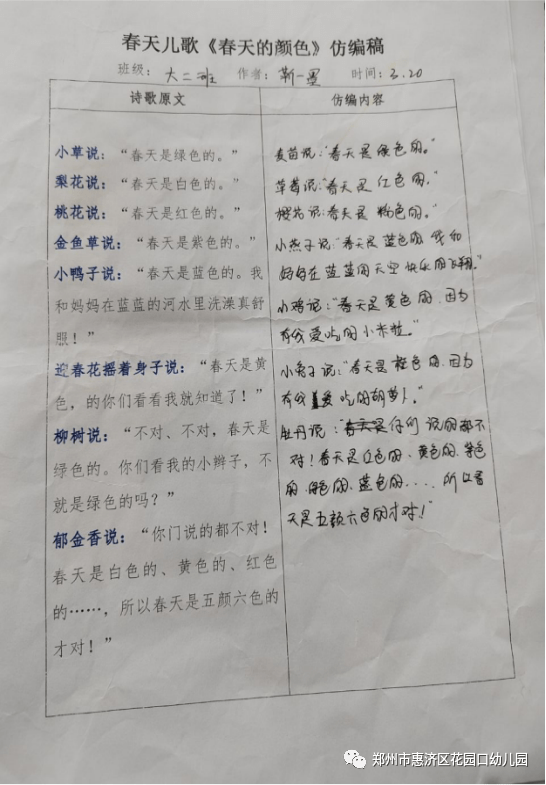 春天儿歌《春天的颜色》仿编稿
班级： 大二班 作者：靳一墨 时间：3.20
诗歌原文
小草说：“春天是绿色的。”
梨花说：“春天是白色的。”
桃花说：“春天是红色的。”
金鱼草说：“春天是紫色的。”
小鸭子说：“春天是蓝色的。我
和妈妈在蓝蓝的河水里洗澡真舒
服！”
迎春花摇着身子说：“春天是黄
色，的你们看看我就知道了！”
柳树说：“不对、不对，春天是
绿色的。你们看我的小辫子，不
就是绿色的吗？”
郁金香说：“你门说的都不对！
春天是白色的、黄色的、红色
的……，所以春天是五颜六色的
才对！”
仿编内容
麦苗说：“春天是绿色的。”
草莓说：“春天是红色的。”
樱花说：春天是粉色的。”
小燕子说：“春天是蓝色的，我和
妈妈在蓝蓝的天空快乐的飞翔。”
小鸡说：“春天是黄色的，因为
有我爱吃的小米粒。”
小兔子说：“春天是橙色的，因为
有我爱吃的胡萝卜。”
牡丹说：“春天是你们说的都不
对！春天是红色的、黄色的、紫色
的、绿色的、蓝色的.... 所以春
天是五颜六色的才对！”
郑州市惠济区花园口幼儿园